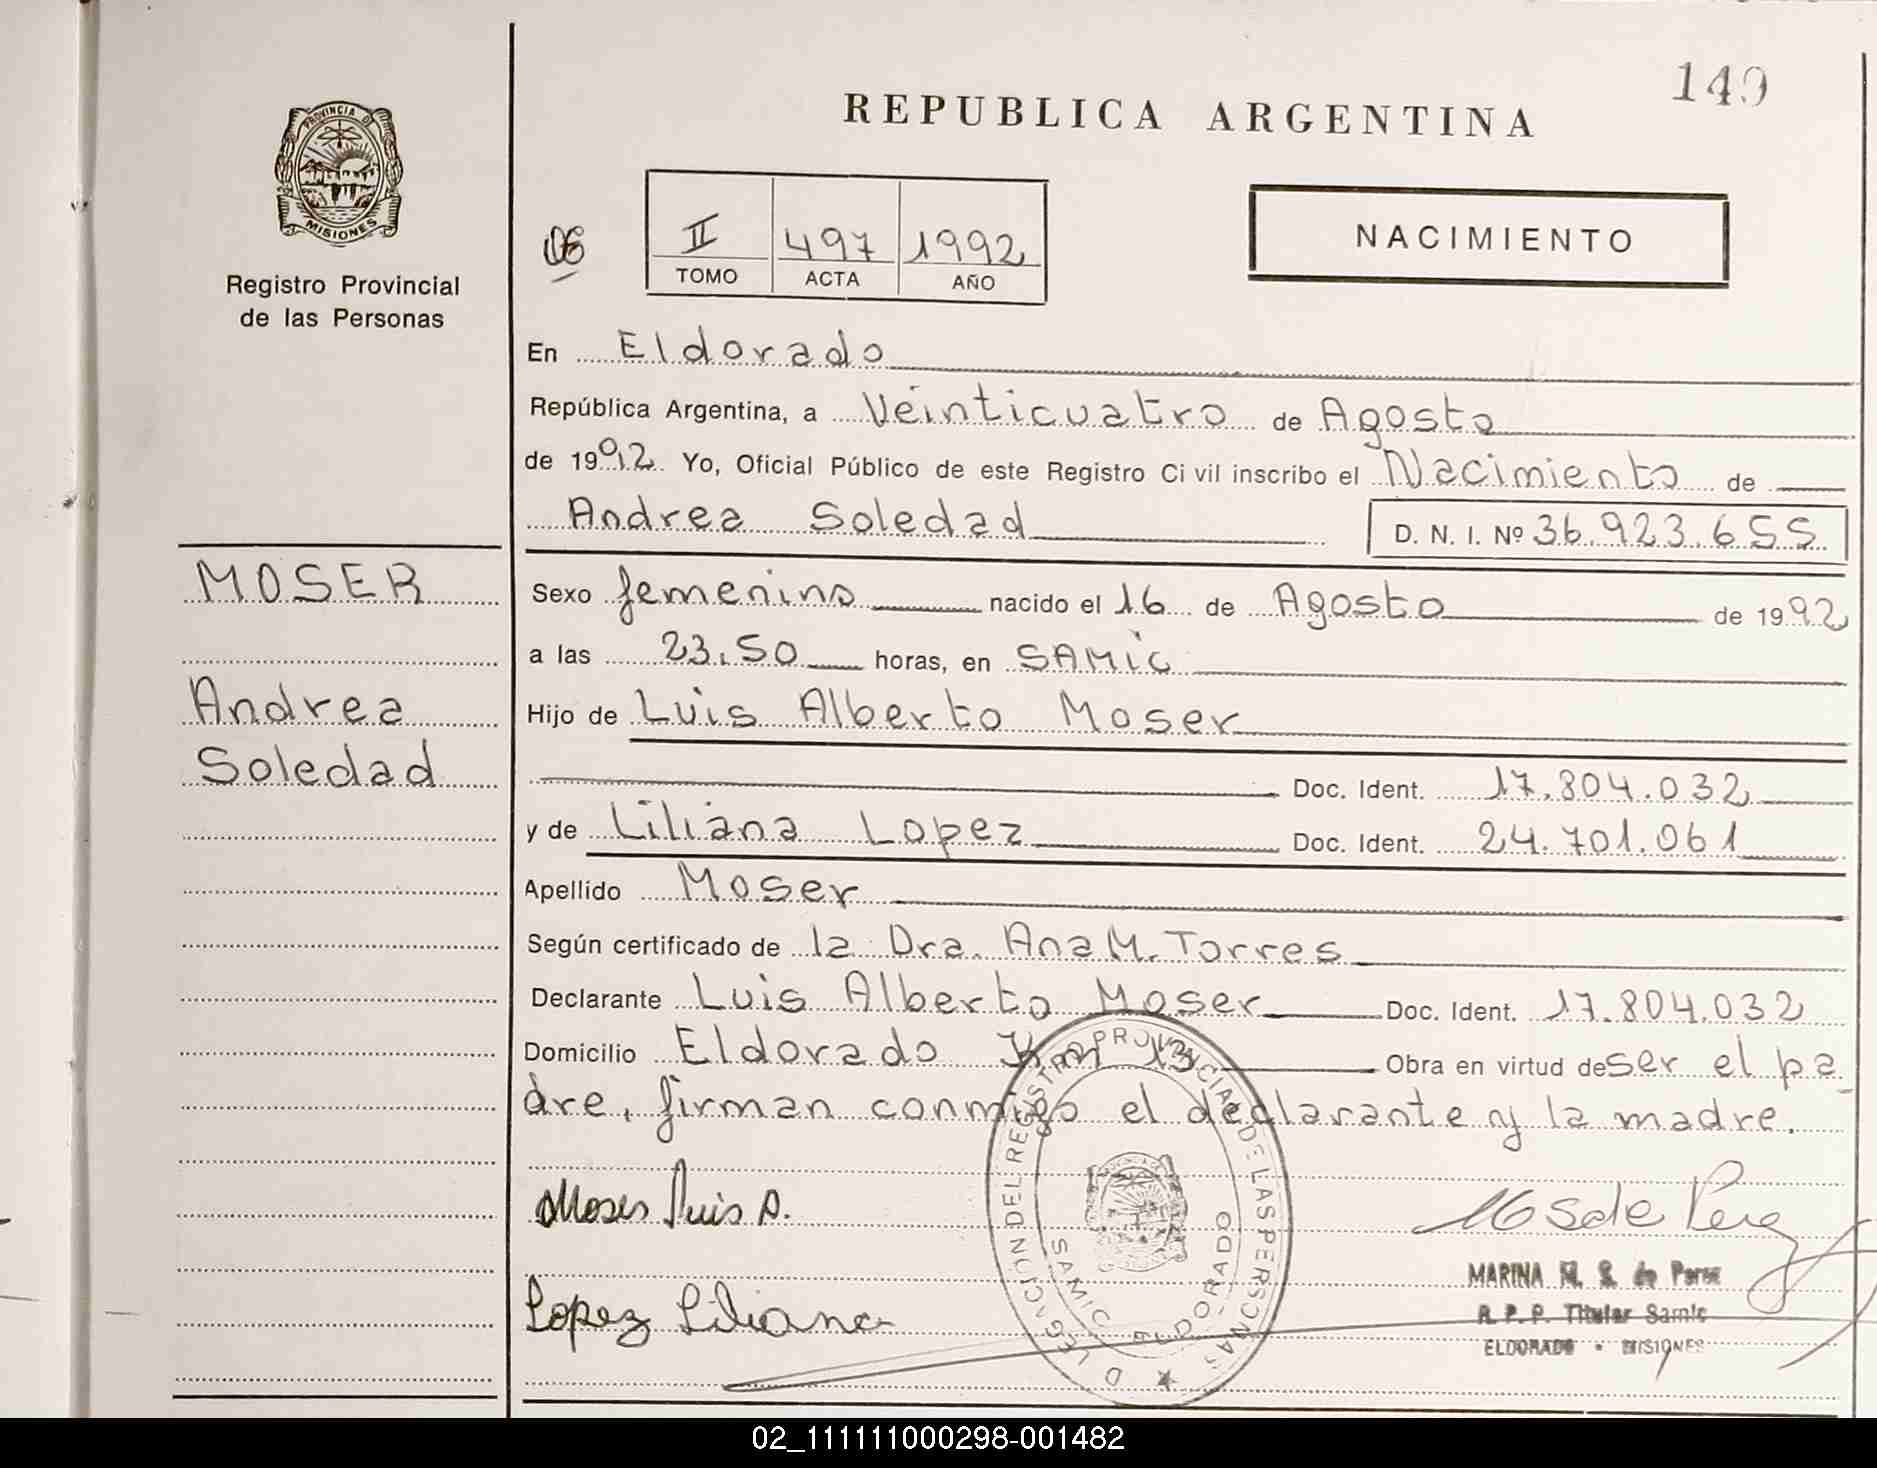 149
REPUBLICA ARGENTINA
PROVINCIA DE
MISIONES
Registro Provincial
de las Personas
06
II 497 1992
TOMO ACTA AÑO
NACIMIENTO
En Eldorado
República Argentina, a Veinticuatro de Agosto
de 1992 Yo, Oficial Público de este Registro Civil inscribo el Nacimiento de
Andrea Soledad D. N. I. Nº 36.923.655
MOSER
Andrea
Soledad
Sexo femenino nacido el 16 de Agosto de 1992
a las 23.50 horas, en SAMIC
Hijo de Luis Alberto Moser
Doc. Ident. 17.804.032
y de Liliana Lopez Doc. Ident. 24.701.061
Apellido Moser
Según certificado de la Dra. Ana M. Torres
Declarante Luis Alberto Moser Doc. Ident. 17.804.032
Domicilio Eldorado Km 13 Obra en virtud de ser el pa
dre, firman conmigo el declarante y la madre.
Moser Luis A.
Lopez Liliana
DELEGACION DEL REGISTRO PROVINCIAL DE LAS PERSONAS
SAMIC ELDORADO
MARINA M. S. de Perez
R. P. P. Titular Samic
ELDORADO - MISIONES
02_111111000298-001482